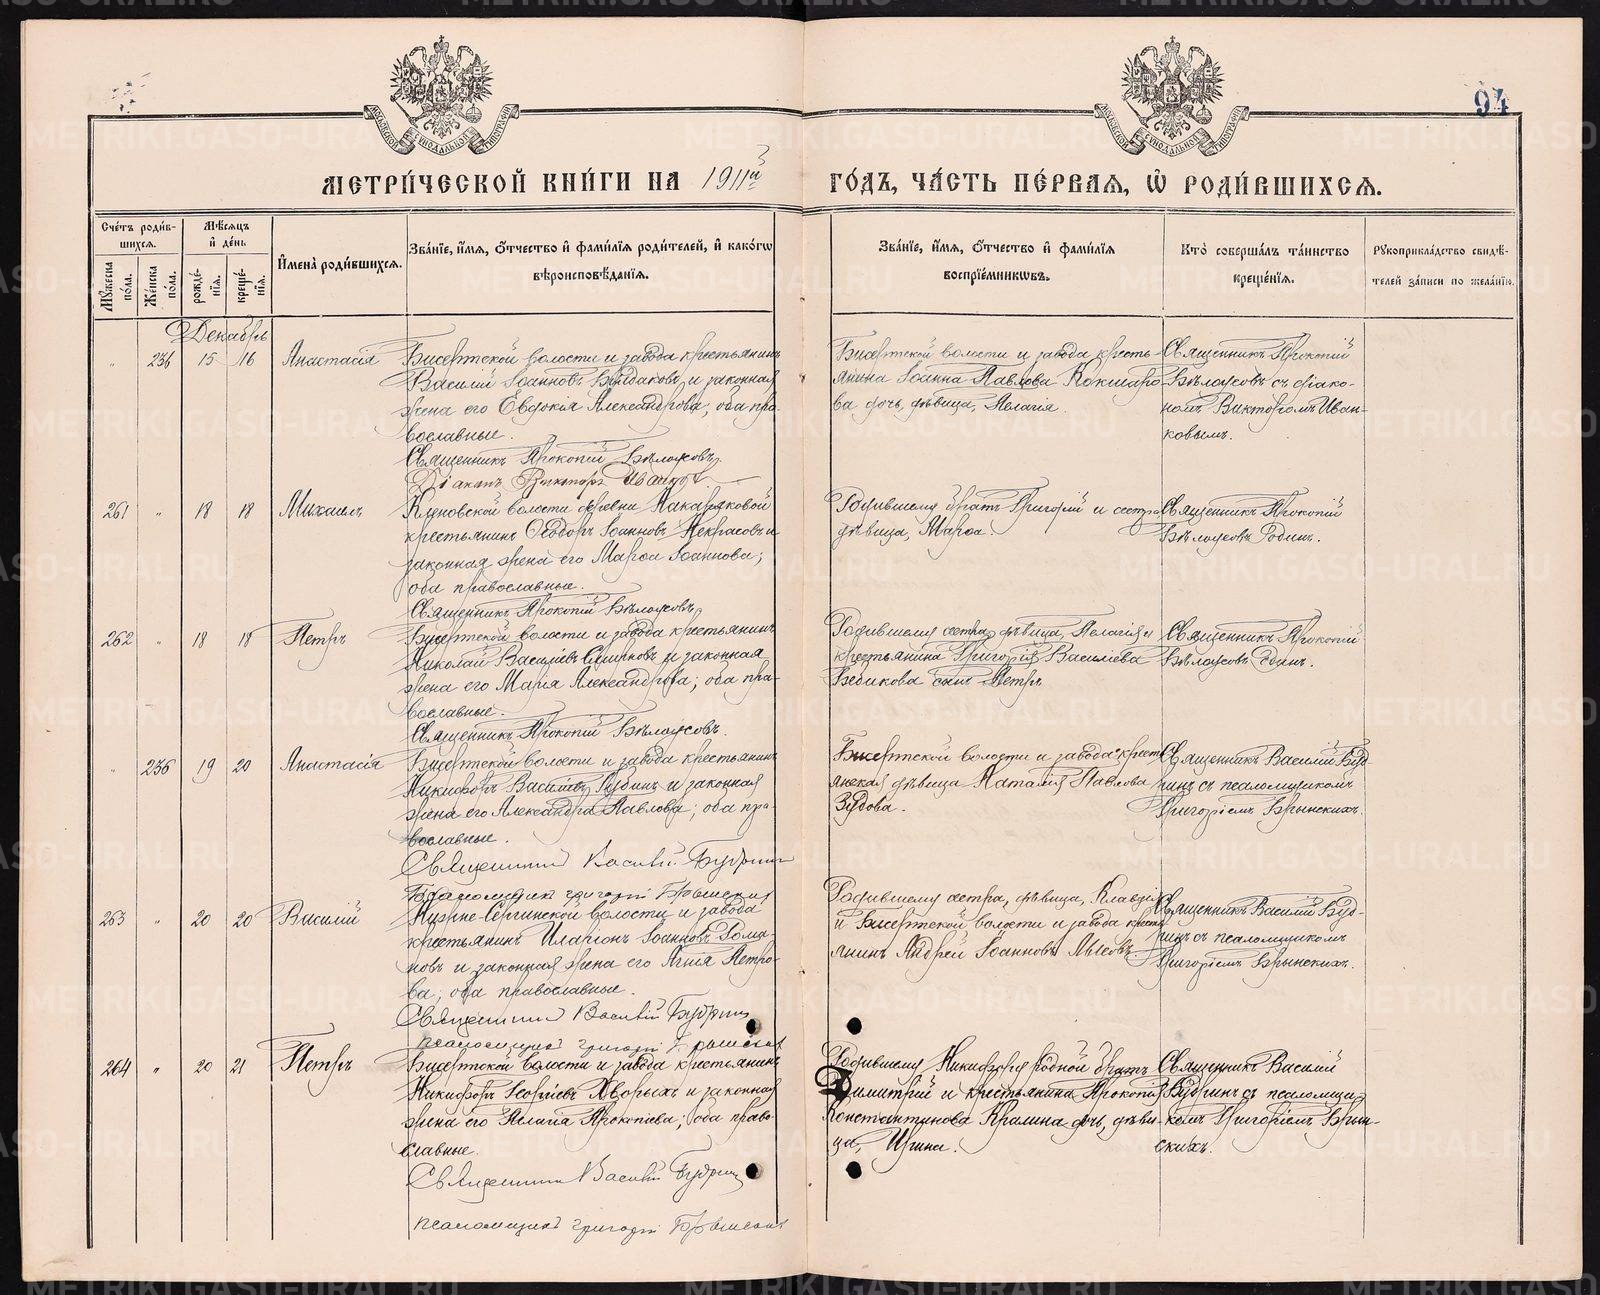 94
МЕТРИ́ЧЕСКОЙ КНИ́ГИ НА 1911й ГО́ДЪ, ЧА́СТЬ ПЕ́РВАЯ, Ѽ РОДИ́ВШИХСЯ.
Сче́тъ роди́в-
шихся.
Мꙋ́жеска по́ла.
Же́нска по́ла.
Мѣ́сяцъ
и҆ де́нь
рожде́-
нїя.
креще́-
нїя.
И҆мена̀ роди́вшихся.
Зва́нїе, и҆́мя, ѻ҆́тчество и҆ фами́лїя роди́телей, и҆ како́гѡ
вѣроисповѣ́данїя.
Зва́нїе, и҆́мя, ѻ҆́тчество и҆ фами́лїя
воспрїе́мниковъ.
Кто̀ соверша́лъ та́инство
креще́нїя.
Рꙋкоприкла́дство свидѣ́-
телей за́писи по жела́нїю.
Декабрь
" 236 15 16 Анастасія
Бисертской волости и завода крестьянинъ
Василій Іоанновъ и законная
жена его Евдокія Александрова; оба пра-
вославные.
Священникъ Прокопій Бѣлоусовъ.
Діаконъ Викторъ Иванковъ.
Бисертской волости и завода кресть-
янина Іоанна Павлова Кокшаро-
ва дочь, дѣвица, Пелагія.
Священникъ Прокопій
Бѣлоусовъ съ діако-
номъ Викторомъ Иван-
ковымъ.
261 " 18 18 Михаилъ
Кленовской волости деревни Макаряковой
крестьянинъ Ѳеодоръ Іоанновъ Некрасовъ и
законная жена его Марѳа Іоаннова;
оба православные.
Священникъ Прокопій Бѣлоусовъ
Родившему братъ Григорій и сестра
дѣвица, Марѳа.
Священникъ Прокопій
Бѣлоусовъ Одинъ.
262 " 18 18 Петръ
Бисертской волости и завода крестьянинъ
Николай Василіевъ Смирновъ и законная
жена его Марія Александрова; оба пра-
вославные.
Священникъ Прокопій Бѣлоусовъ.
Родившему сестра, дѣвица, Пелагія и
крестьянина Григорія Василіева
сынъ Петръ
Священникъ Прокопій
Бѣлоусовъ Одинъ.
" 236 19 20 Анастасія
Бисертской волости и завода крестьянинъ
Никифоръ Василіевъ и законная
жена его Александра Павлова; оба пра-
вославные.
Священникъ Василій Будринъ
Псаломщикъ Григорій Брынскихъ
Бисертской волости и завода крест-
янская дѣвица Наталія Павлова
Зудова.
Священникъ Василій Буд-
ринъ съ псаломщикомъ
Григоріемъ Брынскихъ.
263 " 20 20 Василій
Нижне-Сергинской волости и завода
крестьянинъ Иларіонъ Іоанновъ Рома-
новъ и законная жена его Агнія Петро-
ва; оба православные.
Священникъ Василій Будринъ
псаломщикъ Григорій Брынскихъ
Родившему сестра, дѣвица, Клавдія
и Бисертской волости и завода крест-
янинъ Андрей Іоанновъ Мысовъ.
Священникъ Василій Буд-
ринъ съ псаломщикомъ
Григоріемъ Брынскихъ.
264 " 20 21 Петръ
Бисертской волости и завода крестьянинъ
Никифоръ Георгіевъ Хворыхъ и законная
жена его Прокопіева; оба право-
славные.
Священникъ Василій Будринъ
псаломщикъ Григорій Брынскихъ
Родившему Никифору родной братъ
Димитрій и крестьянина Прокопія
Константинова дочь, дѣви-
ца, Ирина.
Священникъ Василій
Будринъ съ псаломщи-
комъ Григоріемъ Брын-
скихъ.
METRIKI.GASO-URAL.RU